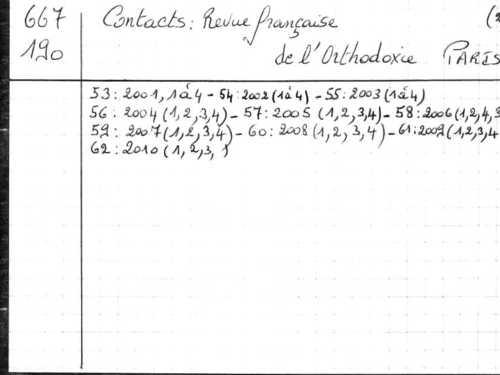 667 Contacts: Revue française (2
190 de l'Orthodoxie PARIS
53: 2001, 1 à 4 - 54: 2002 (1 à 4) - 55: 2003 (1 à 4)
56: 2004 (1, 2, 3, 4) - 57: 2005 (1, 2, 3, 4) - 58: 2006 (1, 2, 4, 3
59: 2007 (1, 2, 3, 4) - 60: 2008 (1, 2, 3, 4) - 61: 2009 (1, 2, 3, 4
62: 2010 (1, 2, 3, )